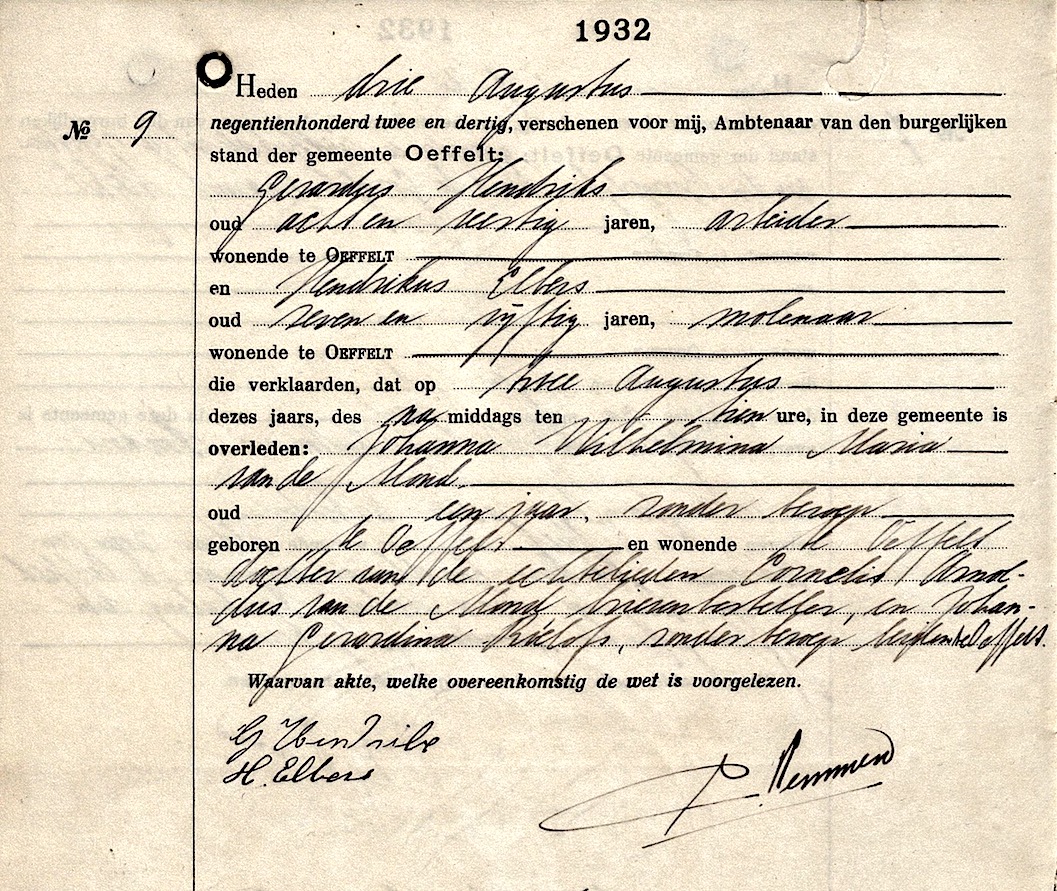 1932
Heden drie Augustus
№ 9 negentienhonderd twee en dertig, verschenen voor mij, Ambtenaar van den burgerlijken
stand der gemeente Oeffelt:
Gerardus Hendriks
oud acht en veertig jaren, arbeider
wonende te OEFFELT
en Hendrikus Elbers
oud zeven en vijftig jaren, molenaar
wonende te OEFFELT
die verklaarden, dat op twee Augustus
dezes jaars, des namiddags ten tien ure, in deze gemeente is
overleden: Johanna Wilhelmina Maria
van de Mond
oud een jaar, zonder beroep
geboren te Oeffelt en wonende te Oeffelt
dochter van de echtelieden Cornelis Arnol-
dus van de Mond, brievenbesteller, en Johan-
na Gerardina Roelofs, zonder beroep, beiden te Oeffelt.
Waarvan akte, welke overeenkomstig de wet is voorgelezen.
G Hendriks
H. Elbers
Remmen